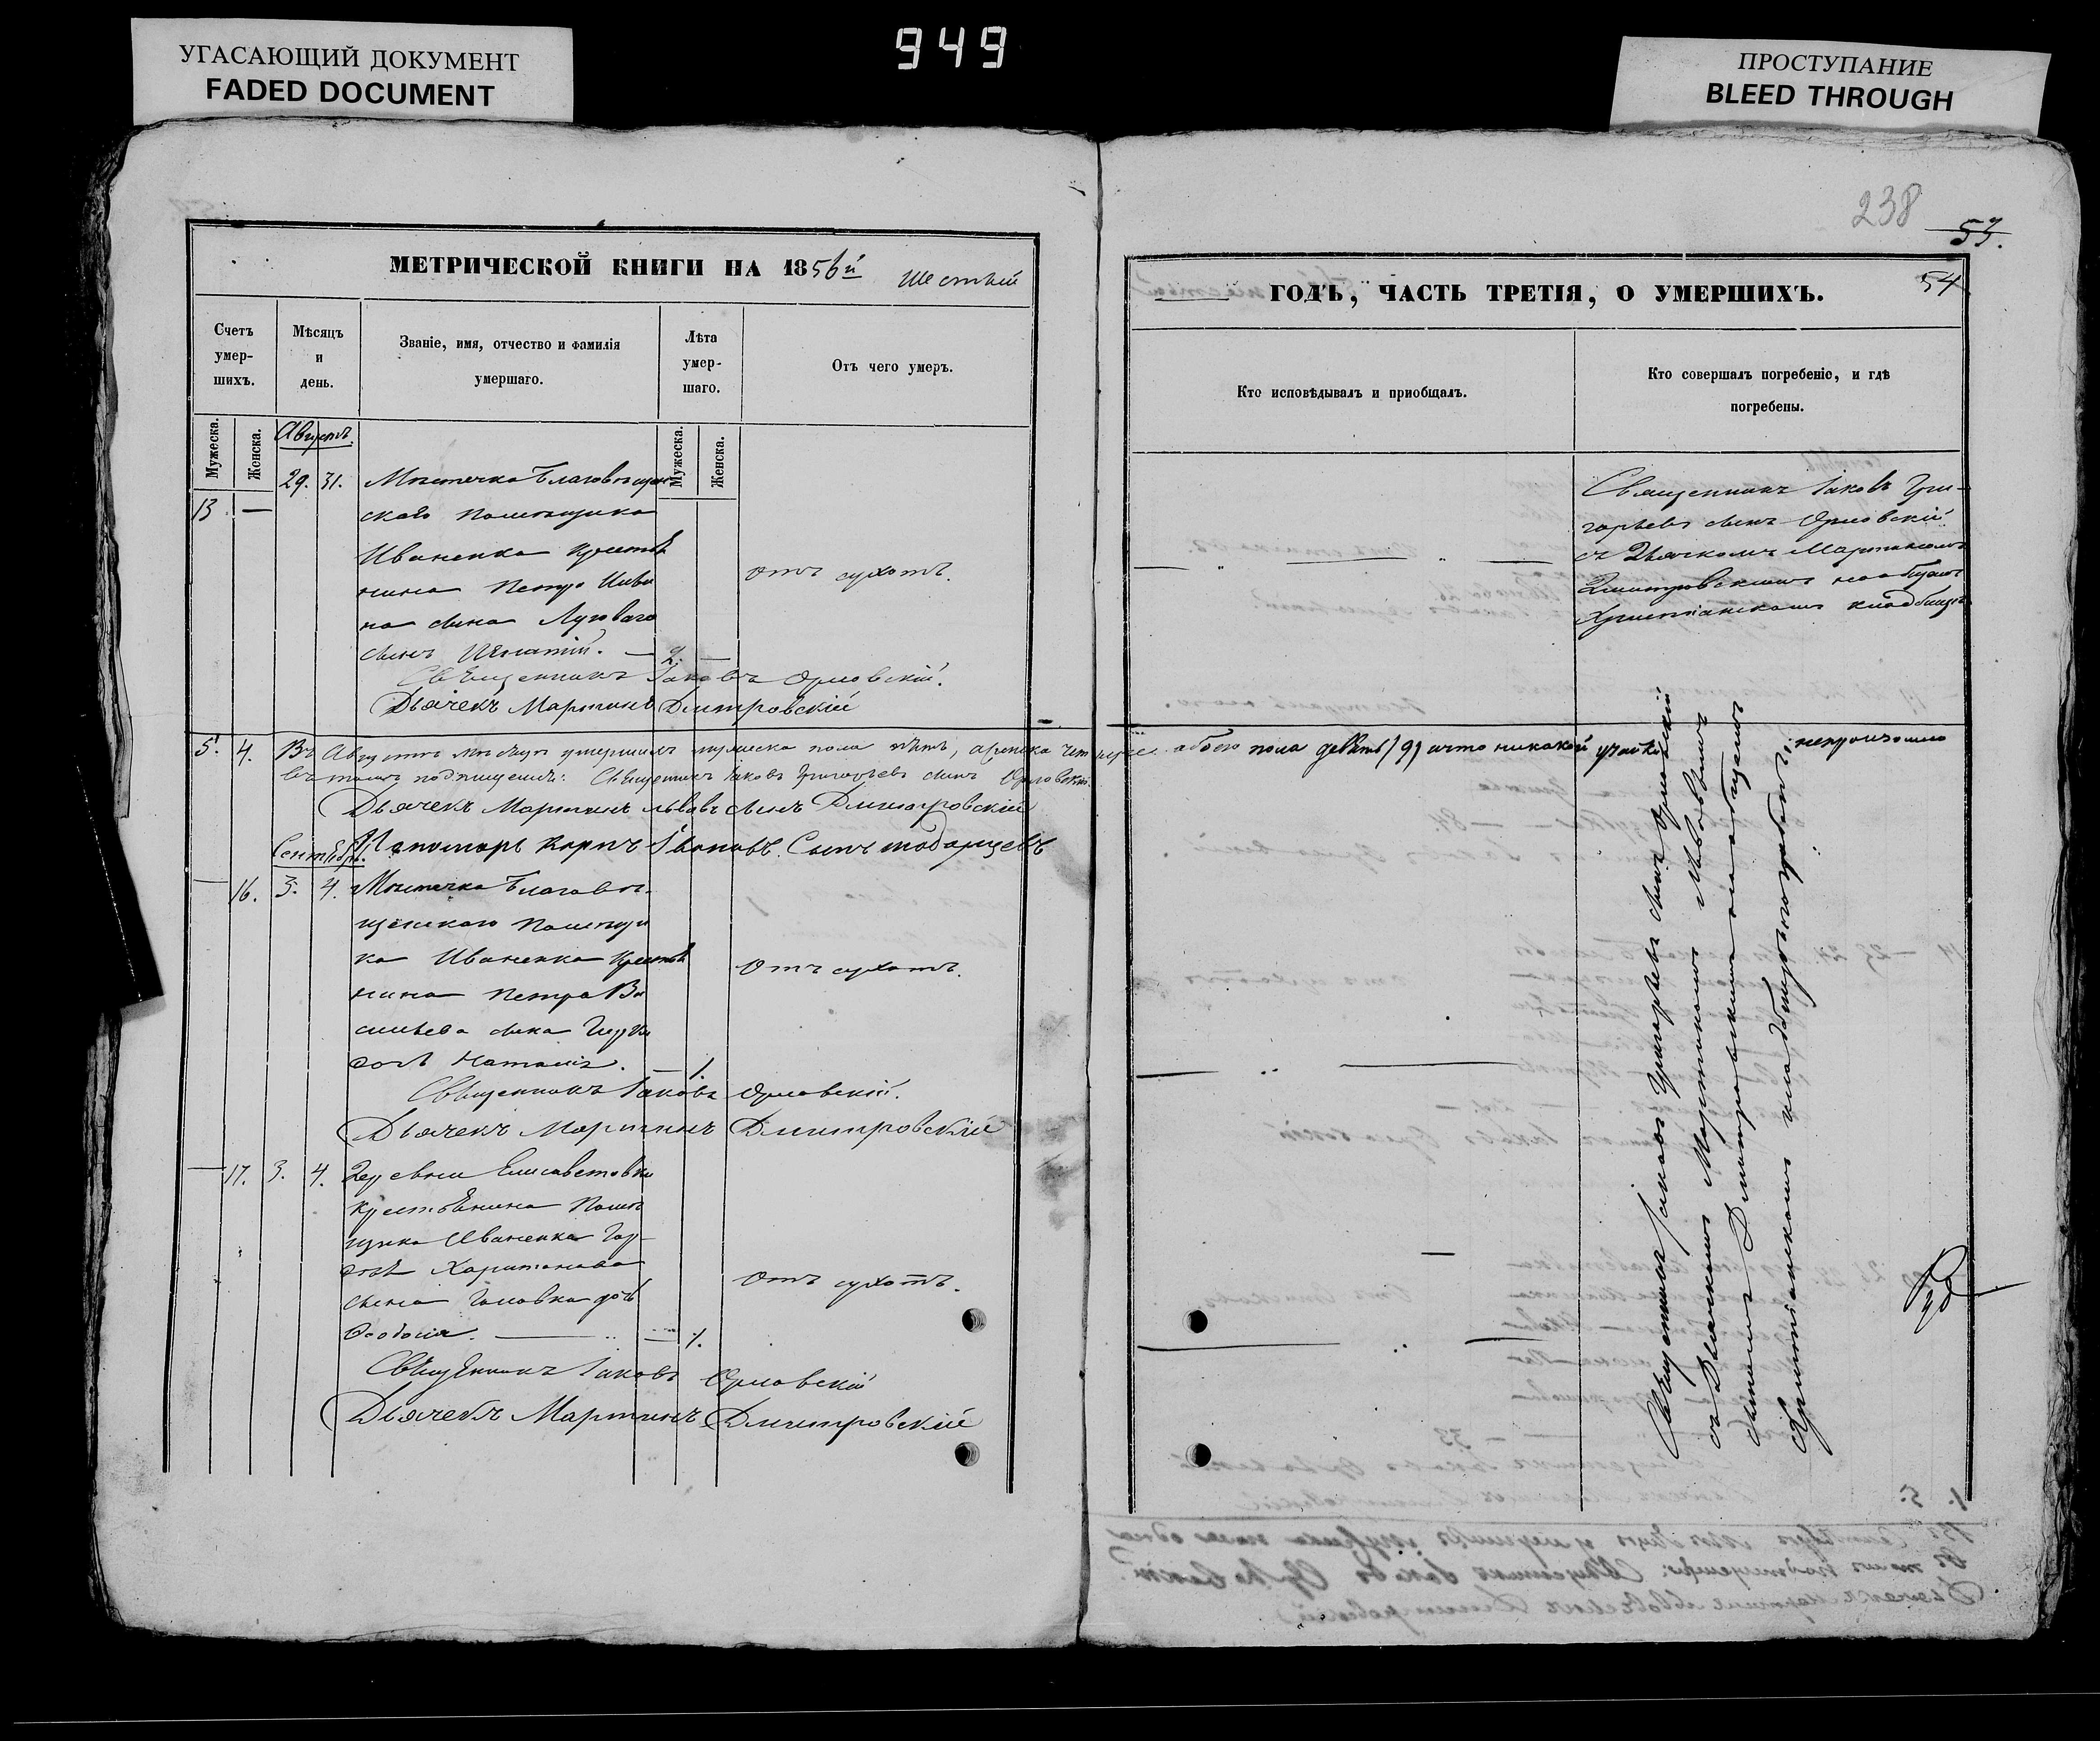 949
УГАСАЮЩИЙ ДОКУМЕНТ
FADED DOCUMENT
ПРОСТУПАНИЕ
BLEED THROUGH
238
53.
54
МЕТРИЧЕСКОЙ КНИГИ НА 1856й Шестый
Счетъ умер-шихъ.
Мѣсяцъ и день.
Званіе, имя, отчество и фамилія умершаго.
Лѣта умер-шаго.
Отъ чего умеръ.
Мужеска.
Женска.
Мужеска.
Женска.
Августъ.
13 — 29. 31. Мѣстечка Благовѣщен
скаго помѣщика
Иваненка крестья
нина Петра
на сына Луговаго
сынъ Игнатій. — 2. —
отъ сухотъ.
Священникъ Іаковъ Орловскій.
Дьячекъ Мартинъ Дмитровскій
5. 4. Въ Августѣ мѣсяцѣ умершихъ мужеска пола пять, а женска четыре
въ томъ подпишемся: Священникъ Іаковъ Григорьевъ сынъ Орловскій.
Дьячекъ Мартинъ Львовъ сынъ Дмитровскій
Пономарь Карпъ Сынъ
Сентябрь.
— 16. 3. 4. Мѣстечка Благовѣ-
щенскаго помѣщи
ка Иваненка крестья
нина Петра Ва
сильева сына
дочь Наталія. — 1.
Отъ сухотъ.
Священникъ Іаковъ Орловскій.
Дьячекъ Мартинъ Дмитровскій
— 17. 3. 4. Деревни Елисаветовки
крестьянина помѣ
щика Иваненка Гор-
дѣя Харитонова
сына Головка дочь
Феодосія. — 1.
Отъ сухотъ.
Священникъ Іаковъ Орловскій
Дьячекъ Мартинъ Дмитровскій
ГОДЪ, ЧАСТЬ ТРЕТІЯ, О УМЕРШИХЪ.
Кто исповѣдывалъ и приобщалъ.
Кто совершалъ погребеніе, и гдѣ погребены.
Священникъ Іаковъ Гри-
горьевъ сынъ Орловскій
съ Дьячкомъ Мартиномъ
Дмитровскимъ на общемъ
Христіанскомъ кладбищѣ
обоего пола девять (9) и что никакой утайки непроизошло
Священникъ Іаковъ Григорьевъ сынъ Орловскій
съ Дьячкомъ Мартиномъ Львововымъ
сыномъ Дмитровскимъ на общемъ
Христіанскомъ кладбищѣ погребены.